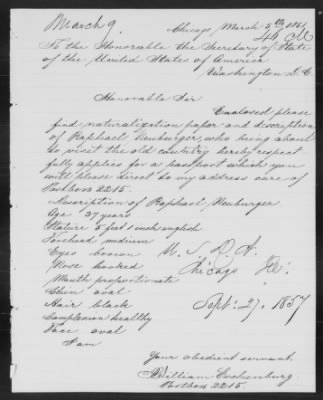 March 9.
Chicago March 5th 1861
To the Honorable the Secretary of State
of the United States of America
Washington D.C.
Honorable Sir
Enclosed please
find naturalization paper and description
of Raphael Neuburger who being about
to visit the old country hereby respect
fully applies for a passport which you
will please direct to my address care of
Postbox 2215.
Description of Raphael Neuburger
Age 37 years
Stature 5 feet 1 inch english
Forehead medium
Eyes brown
U. S. D. Ct.
Nose hooked
Chicago Ill.
Mouth proportionate
Chin oval
Hair black
Sept. 27. 1857
Complexion healthy
Face oval
I am
Your obedient servant
William
Postbox 2215.